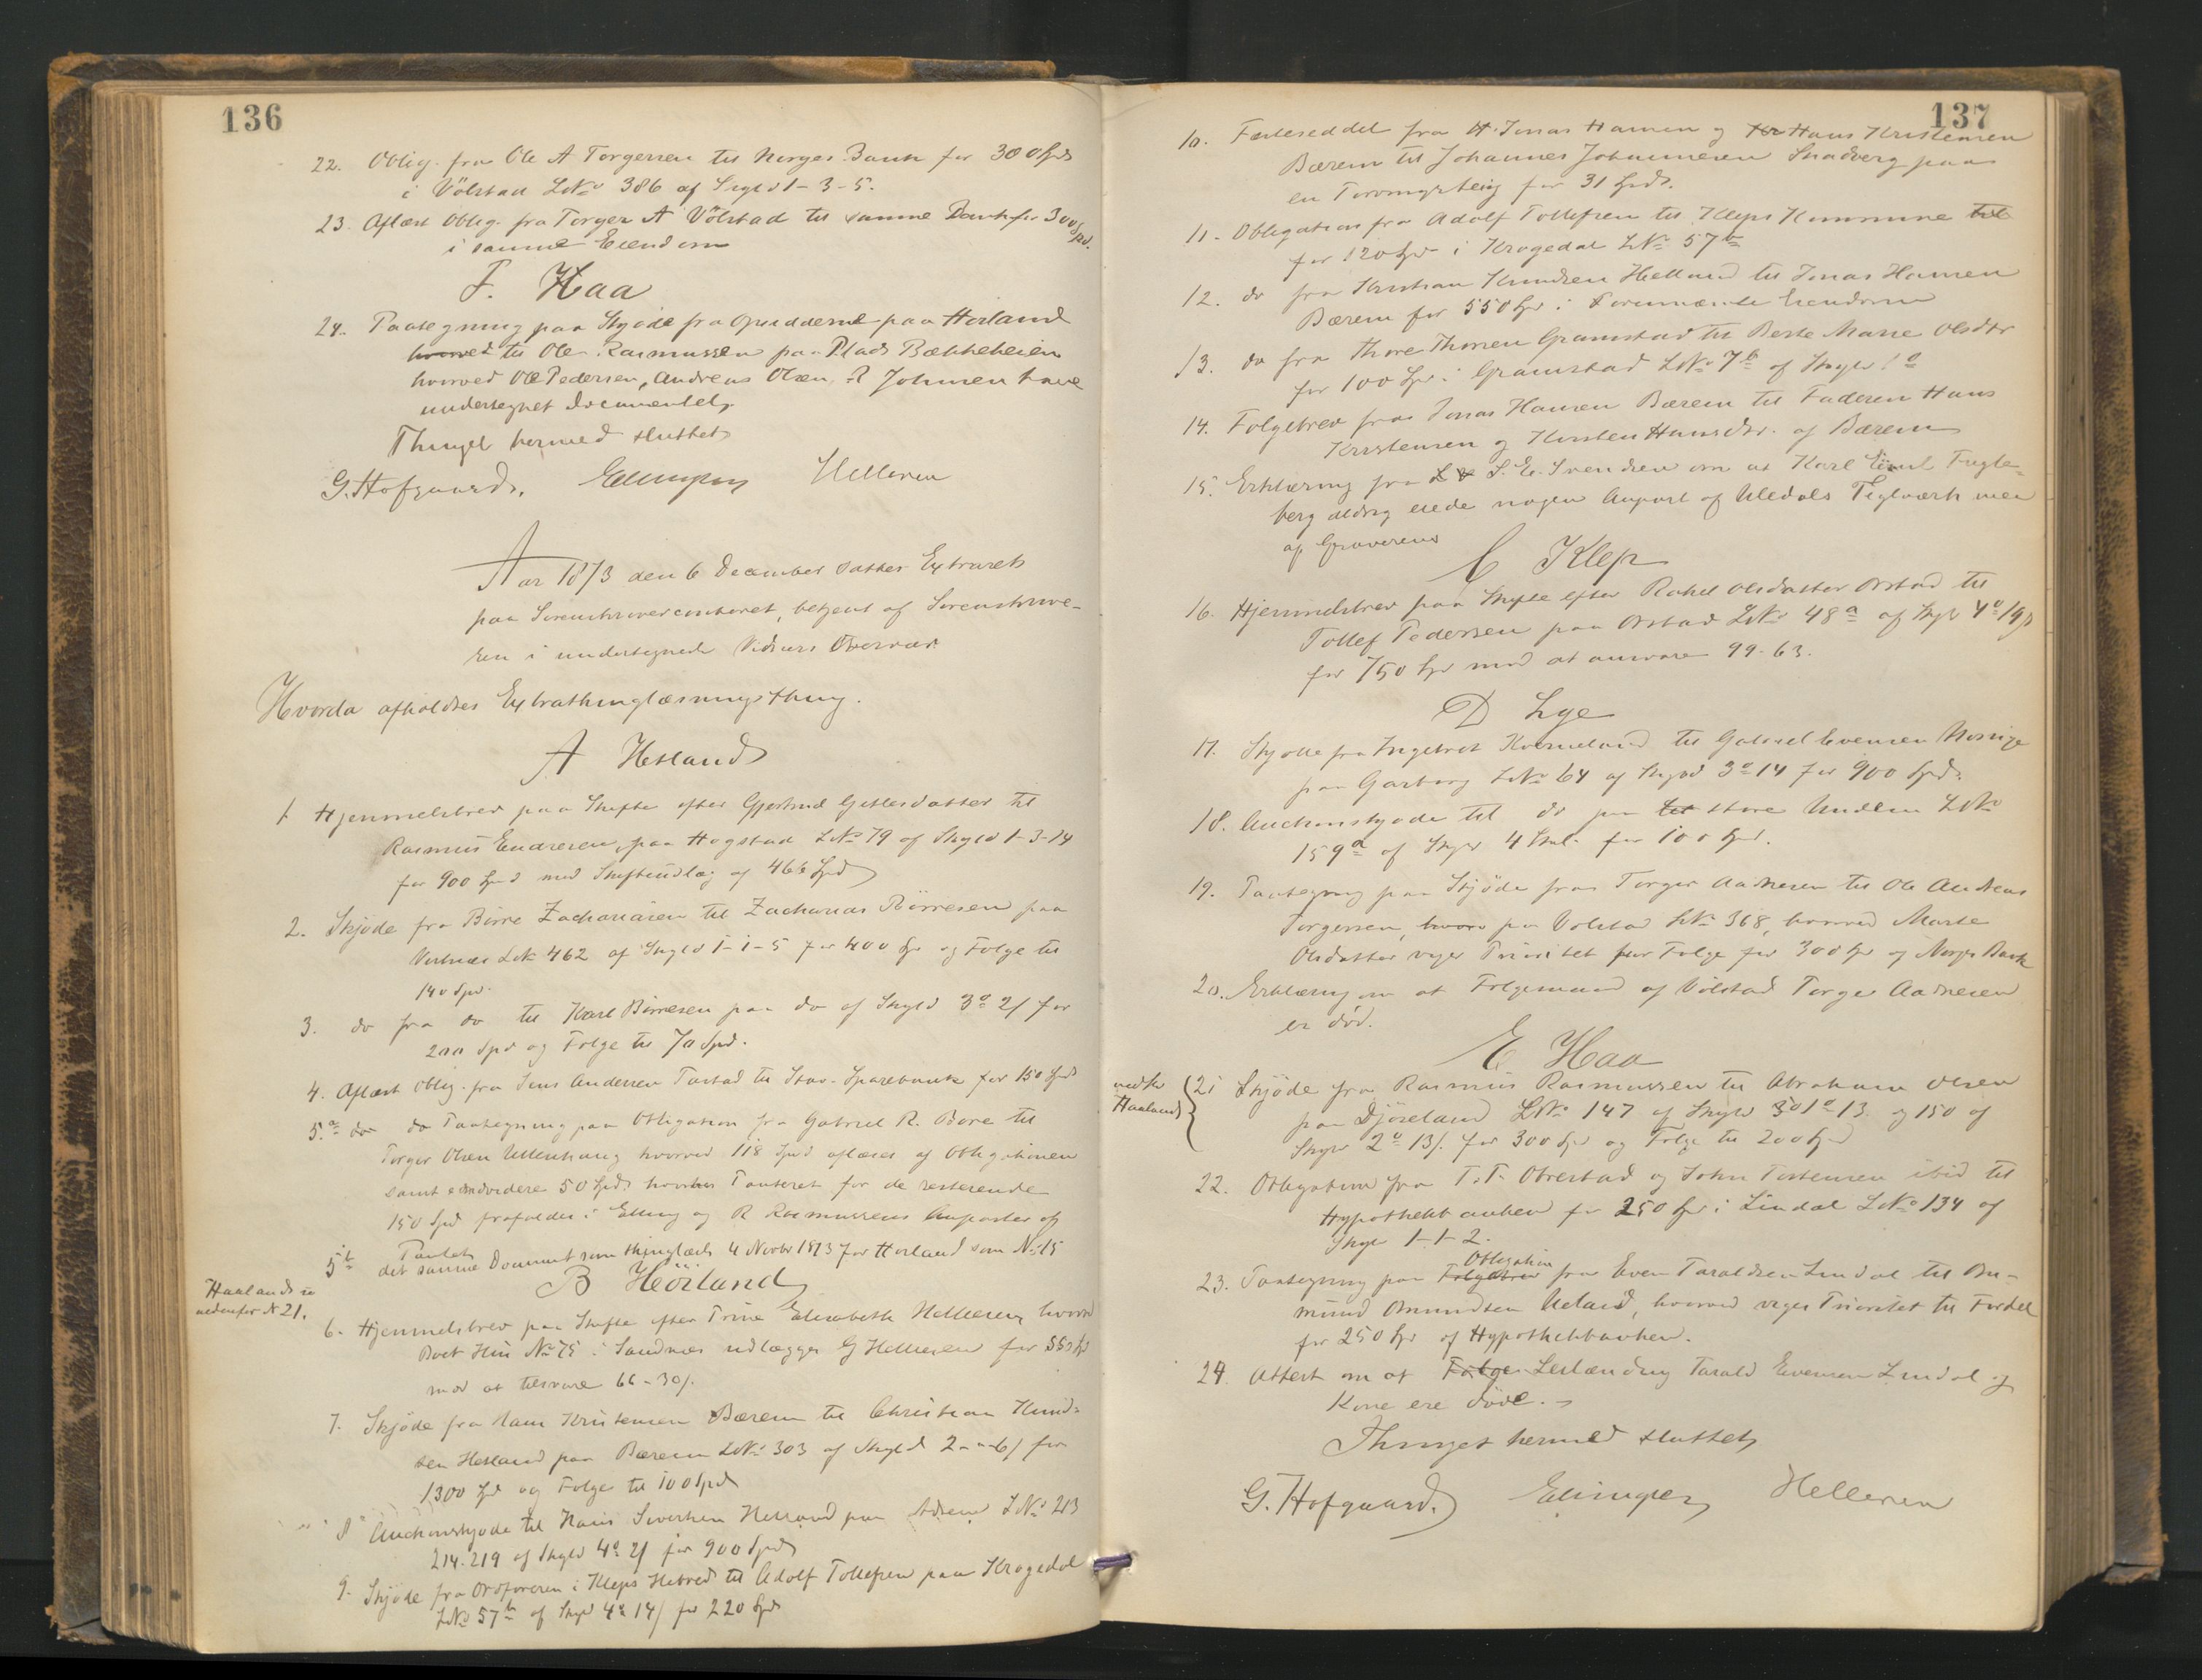 136
22. Oblig. fra Ole A Torgersen til Norges Bank for 300 Spd
i Völstad LNo 386 af Skyld 1-3-5.
23. Aflæst Oblig. fra Torger A Völstad til samme Bank for 300 Spd.
i samme Eiendom
F. Haa
24. Paategning paa Skjöde fra Opsidderne paa Horland
hvorved til Ole Rasmussen paa Plads Bækkeheien
hvorved Ole Pedersen, Andreas Olsen, R Johnsen have
undertegnet Documentet,
Thinget hermed sluttet
G. Hofgaard. Edinger Helleren
Aar 1873 den 6 December sattes Extraret
paa Sorenskrivercontoret, betjent af Sorenskrive-
ren i undertegnede Vidners Overvær
Hvorda afholdtes Extrathinglæsningsthing.
A Hetland
1. Hjemmelsbrev paa Skifte efter Gjertrud Gitlesdatter til
Rasmus Endresen, paa Hogstad LNo 79 af Skyld 1-3-14
for 900 Spd med Skifteudlæg af 466 Spd
2. Skjöde fra Börre Zachariasen til Zacharias Börresen paa
LNo 462 af Skyld 1-1-5 for 400 Spd og Folge til
140 Spd.
3. do fra do til Karl Börresen paa do af Skyld 3o 2/ for
200 Spd og Folge til 70 Spd.
4. Aflæst Oblig. fra Jens Andersen Tastad til Stav. Sparebank for 150 Spd
5.a do do Paategning paa Obligation fra Gabriel R. Bore til
Torger Olsen Ullenhaug hvorved 118 Spd aflæses af Obligationen
samt endvidere 50 Spd. hvorhos Panteret for de resterende
150 Spd frafaldes i Elling og R Rasmussens Anparter af
Pantet
5b det samme Document som thinglæst 4 Novbr 1873 for Horland som No 15
B Höiland
Haaland se
nedenfor N 21.
6. Hjemmelsbrev paa Skifte efter Trine Elisabeth Helleren, hvorved
Boet Hus No 75 i Sandnæs udlægges G Helleren for 550 Spd
mod at tilsvare 66-30/.
7. Skjöde fra Hans Kristensen Bærem til Christian Knud-
sen Hetland paa Bærem LNo 303 af Skyld 2-"-6/ for
1300 Spd og Folge til 100 Spd
8 Auctionsskjöde til Hans Sivertsen Hetland paa LNo 213
214. 219 af Skyld 4o 2/ for 900 Spd
9. Skjöde fra Ordföreren i Kleps Hebred til Adolf Tollefsen paa Krogedal
LNo 57b af Skyld 4o 14/ for 220 Spd
137
10. Fæsteseddel fra H. Jonas Hansen og Kr Hans Kristensen
Bærem til Johannes Johannesen Skadberg paa
en Torvmyrteig for 31 Spd.
11. Obligation fra Adolf Tollefsen til Kleps Kommune til
for 120 Spd i Krogedal LNo 57b
12. do fra Kristian Knudsen Hetland til Jonas Hansen
Bærem for 550 Spd i Fornævnte Eiendom
13. do fra Thore Thorsen Gramstad til Berte Marie Olsdtr
for 100 Spd i Gramstad LNo 7b af Skyld 1o
14. Folgebrev fra Jonas Hansen Bærem til Faderen Hans
Kristensen og Kirsten Hansdtr. af Bærem
15. Erklæring fra S. E. Svendsen om at Karl Emil Fugle-
berg aldrig eiede nogen Anpart af Uledals Teglværk men
af Graveren
C Klep
16. Hjemmelsbrev paa Skifte efter Rakel Olsdatter Orstad til
Tollef Pedersen paa Orstad LNo 48a af Skyld 4o 19/
for 750 Spd mod at ansvare 99-63.
D Lye
17. Skjöde fra Ingebret Kverneland til Gabriel Evensen Norrige
paa Garborg LNo 64 af Skyld 3o 14 for 900 Spd.
18. Auctionsskjöde til do paa til store Undem LNo
159a af Skyld 4 Skl. for 100 Spd.
19. Paategning paa Skjöde fra Torger Aadnesen til Ole Andreas
Torgersen, hvorv paa Volstad LNo 368, hvorved Marte
Olsdatter viger Prioritet for Folge for 300 Spd af Norges Bank
20. Erklæring om at Folgemand af Völstad Torger Aadnesen
er död.
E Haa
nedfor
Haaland
21 Skjöde fra Rasmus Rasmussen til Abraham Olsen
paa Djöseland LNo 147 af Skyld 1o 13 og 150 af
Skyld 2o 13/. for 300 Spd og Folge til 200 Spd
22. Obligation fra T. T. Obrestad og John Torstensen ibid til
Hypothekbanken for 250 Spd i Lindal LNo 134 af
Skyld 1-1-2.
23. Paategning paa Folgebrev Obligation fra Even Taraldsen Lindal til Om-
mund Omundsen Ueland, hvorved viges Prioritet til Fordel
for 250 Spd af Hypothekbanken.
24. Attest om at Folge Leilænding Tarald Evensen Lindal og
Kone ere döde.
Thinget hermed sluttet
G. Hofgaard. Edinger Helleren